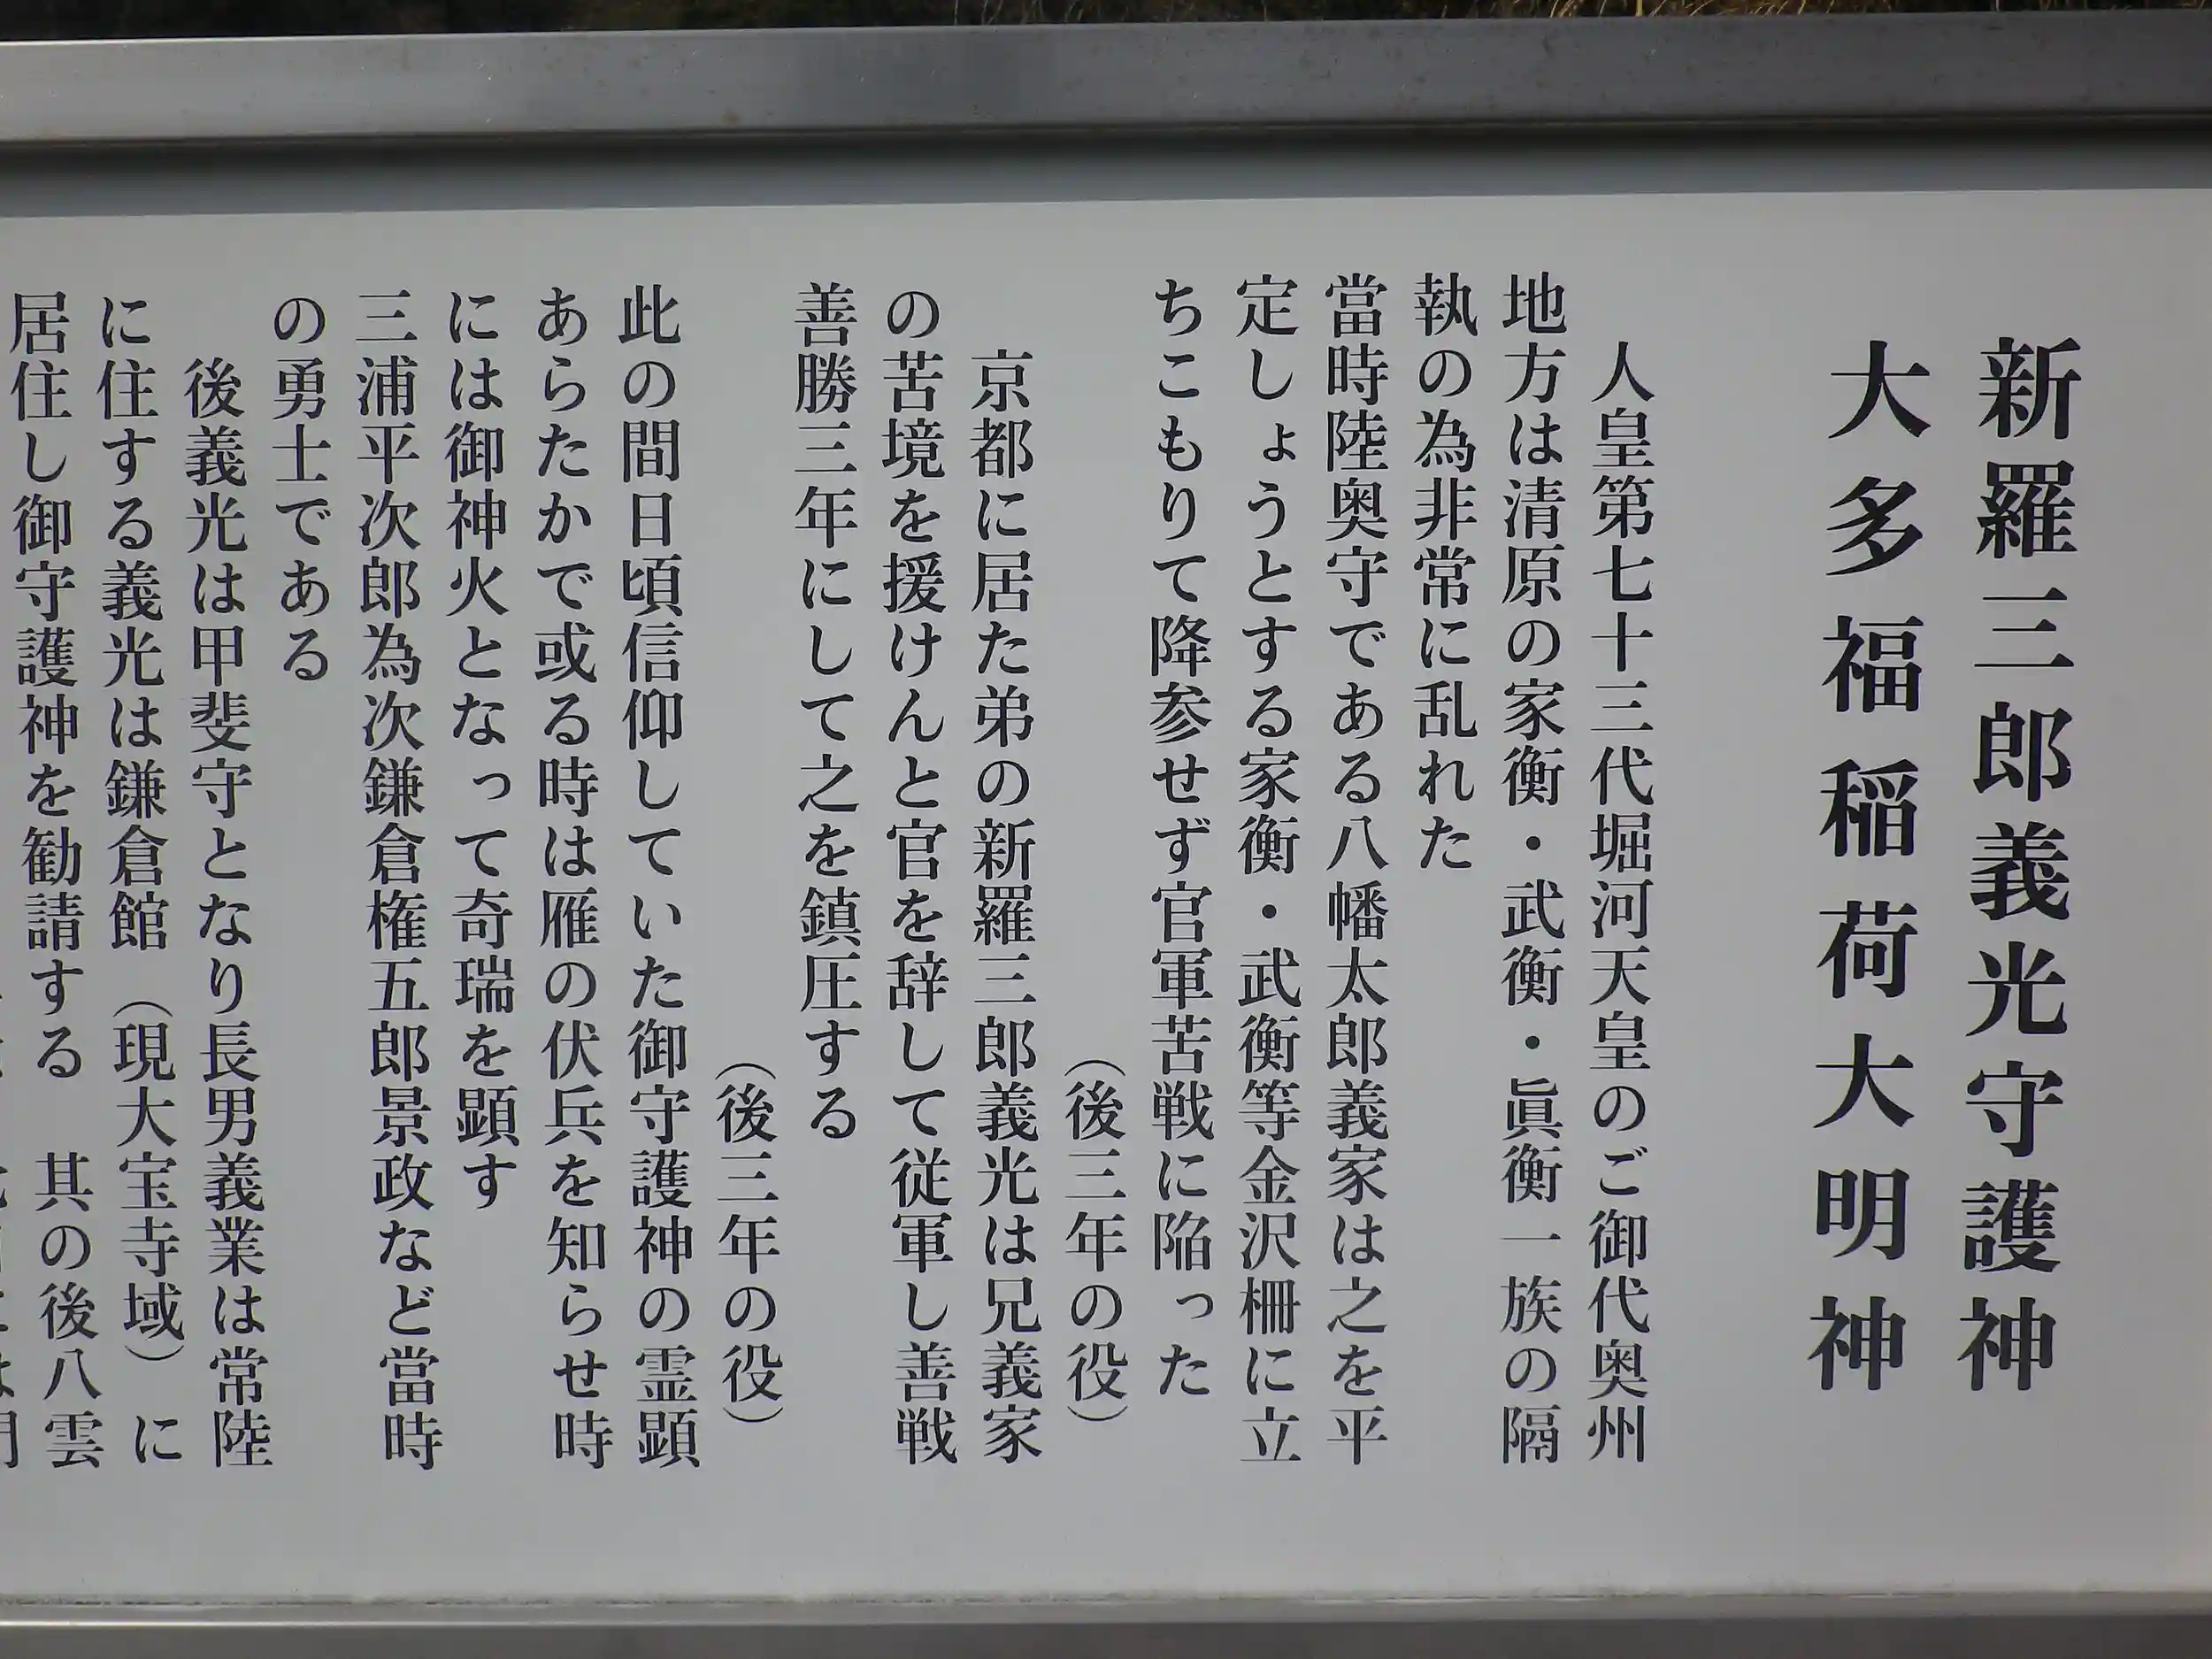 新羅三郎義光守護神
大多福稲荷大明神
人皇第七十三代堀河天皇のご御代奥州
地方は清原の家衡・武衡・眞衡一族の隔
執の為非常に乱れた
當時陸奥守である八幡太郎義家は之を平
定しょうとする家衡・武衡等金沢柵に立
ちこもりて降参せず官軍苦戦に陥った
（後三年の役）
京都に居た弟の新羅三郎義光は兄義家
の苦境を援けんと官を辞して従軍し善戦
善勝三年にして之を鎮圧する
（後三年の役）
此の間日頃信仰していた御守護神の霊顕
あらたかで或る時は雁の伏兵を知らせ時
には御神火となって奇瑞を顕す
三浦平次郎為次鎌倉権五郎景政など當時
の勇士である
後義光は甲斐守となり長男義業は常陸
に住する義光は鎌倉館（現大宝寺域）に
居住し御守護神を勧請する　其の後八雲